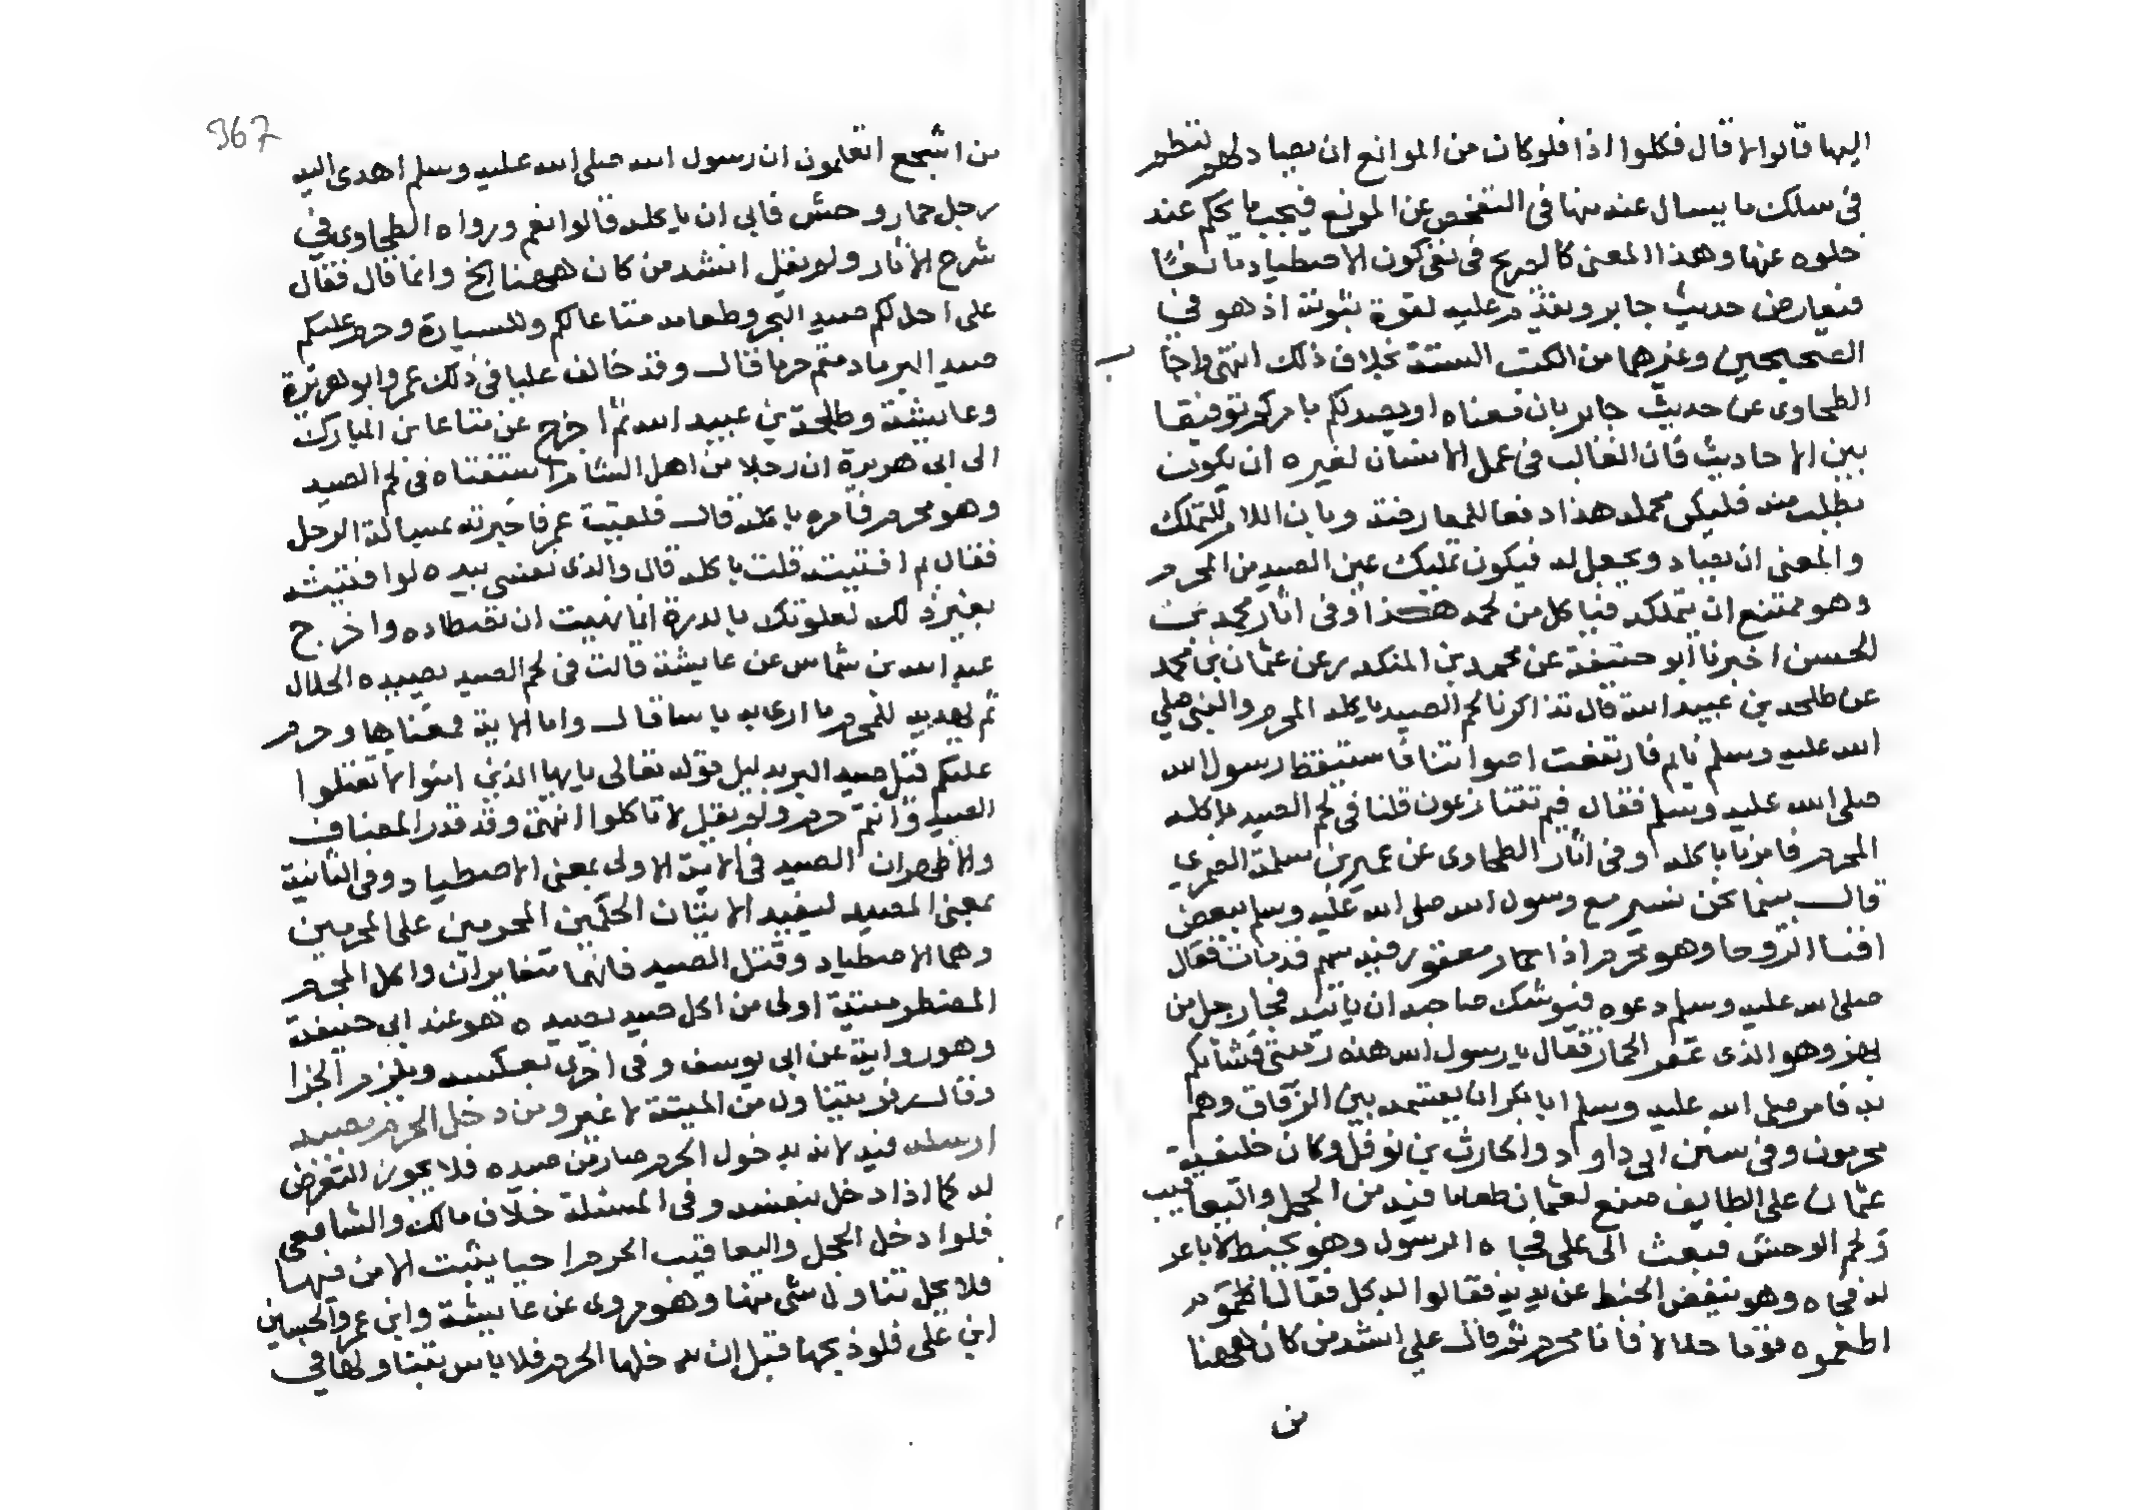 اليها قالوا لا قال فكلوا اذا فلو كان من الموانع ان يصاد لهم لنظم
في سلك ما يسال عنه منها في التفحص عن الموانع فيجب ما يحكم عند
خلوه عنها وهذا المعنى كالصريح في نفي كون الاصطياد مانعا
فيعارض حديث جابر ويقدم عليه لقوة ثبوته اذ هو في
الصحيحين وغيرهما من الكتب الستة بخلاف ذلك انتهى واجاب
الطحاوي عن حديث جابر بان معناه او يصد لكم بامركم توفيقا
بين الاحاديث فان الغالب في عمل الانسان لغيره ان يكون
بطلب منه فليكن محمله هذا دفعا للمعارضة وبان اللام للتملك
والمعنى ان يصاد ويجعل له فيكون تمليك عين الصيد من المحرم
وهو ممتنع ان يتملكه فياكل من لحمه هذا وفي اثار محمد بن
الحسن اخبرنا ابو حنيفة عن محمد بن المنكدر عن عثمان بن محمد
عن طلحة بن عبيد الله قال تذاكرنا لحم الصيد ياكله المحرم والنبي صلى
الله عليه وسلم نايم فارتفعت اصواتنا فاستيقظ رسول الله
صلى الله عليه وسلم فقال فيم تتنازعون قلنا في لحم الصيد ياكله
المحرم فامرنا باكله وفي اثار الطحاوي عن عمير بن سلمة الضمري
قال بينما نحن نسير مع رسول الله صلى الله عليه وسلم ببعض
افنا الروحا وهو محرم اذا حمار معقور فيه سهم قد مات فقال
صلى الله عليه وسلم دعوه فيوشك صاحبه ان ياتيه فجا رجل من
بهز وهو الذي عقر الحمار فقال يا رسول الله هذه رميتي فشانكم
به فامر صلى الله عليه وسلم ابا بكر ان يقسمه بين الرفاق وهم
محرمون وفي سنن ابي داود والحارث بن نوفل وكان خليفة
عثمان على الطايف صنع لعثمان طعاما فيه من الحجل واليعاقيب
ولحم الوحش فبعث الى علي فجاه الرسول وهو يخبط لاباعر
له فجاه وهو ينفض الخبط عن يديه فقالوا له كل فقال
اطعموه قوما حلالا فانا محرم ثم قال علي انشد من كان ههنا
من
367
من اشجع اتعلمون ان رسول الله صلى الله عليه وسلم اهدى اليه
رجل حمار وحش فابى ان ياكله قالوا نعم ورواه الطحاوي في
شرح الاثار ولم يقل انشد من كان ههنا الخ وانما قال فقال
علي احل لكم صيد البحر وطعامه متاعا لكم وللسيارة وحرم عليكم
صيد البر ما دمتم حرما قال وقد خالف عليا في ذلك عمر وابو هريرة
وعايشة وطلحة بن عبيد الله ثم اخرج عن
الى ابي هريرة ان رجلا من اهل الشام استفتاه في لحم الصيد
وهو محرم فامره باكله قال فلقيت عمر فاخبرته بمسالة الرجل
فقال بم افتيته قلت باكله قال والذي نفسي بيده لو افتيته
بغير ذلك لعلوتك بالدرة انما نهيت ان تصطاده واخرج
عبد الله بن شماس عن عايشة قالت في لحم الصيد يصيده الحلال
ثم يهديه للمحرم ما ارى به باسا قال واما الاية فمعناها وحرم
عليكم قتل صيد البر بدليل قوله تعالى يايها الذين امنوا لا تقتلوا
الصيد وانتم حرم ولم يقل لا تاكلوا انتهى وقد قدر المضاف
والاظهر ان الصيد في الاية الاولى بمعنى الاصطياد وفي الثانية
بمعنى المصيد ليفيد الايتان الحكمين المحرمين على المحرمين
وهما الاصطياد وقتل الصيد فانهما متغايران واكل المحرم
المضطر ميتة اولى من اكل صيد يصيده فهو عند ابي حنيفة
وهو رواية عن ابي يوسف وفي اخرى بعكسه ويلزم الجزا
وقال زفر يتناول من الميتة لا غير ومن دخل الحرم بصيد
ارسله فيه لانه بدخول الحرم صار من صيده فلا يجوز التعرض
له كما اذا دخل بنفسه وفي المسئلة خلاف مالك والشافعي
فلو ادخل الحجل واليعاقيب الحرم احيا يثبت الامن فيها
فلا يحل تناول شي منها وهو مروي عن عايشة وابن عمر والحسين
ابن علي فلو ذبحها قبل ان يدخلها الحرم فلا باس بتناولها في